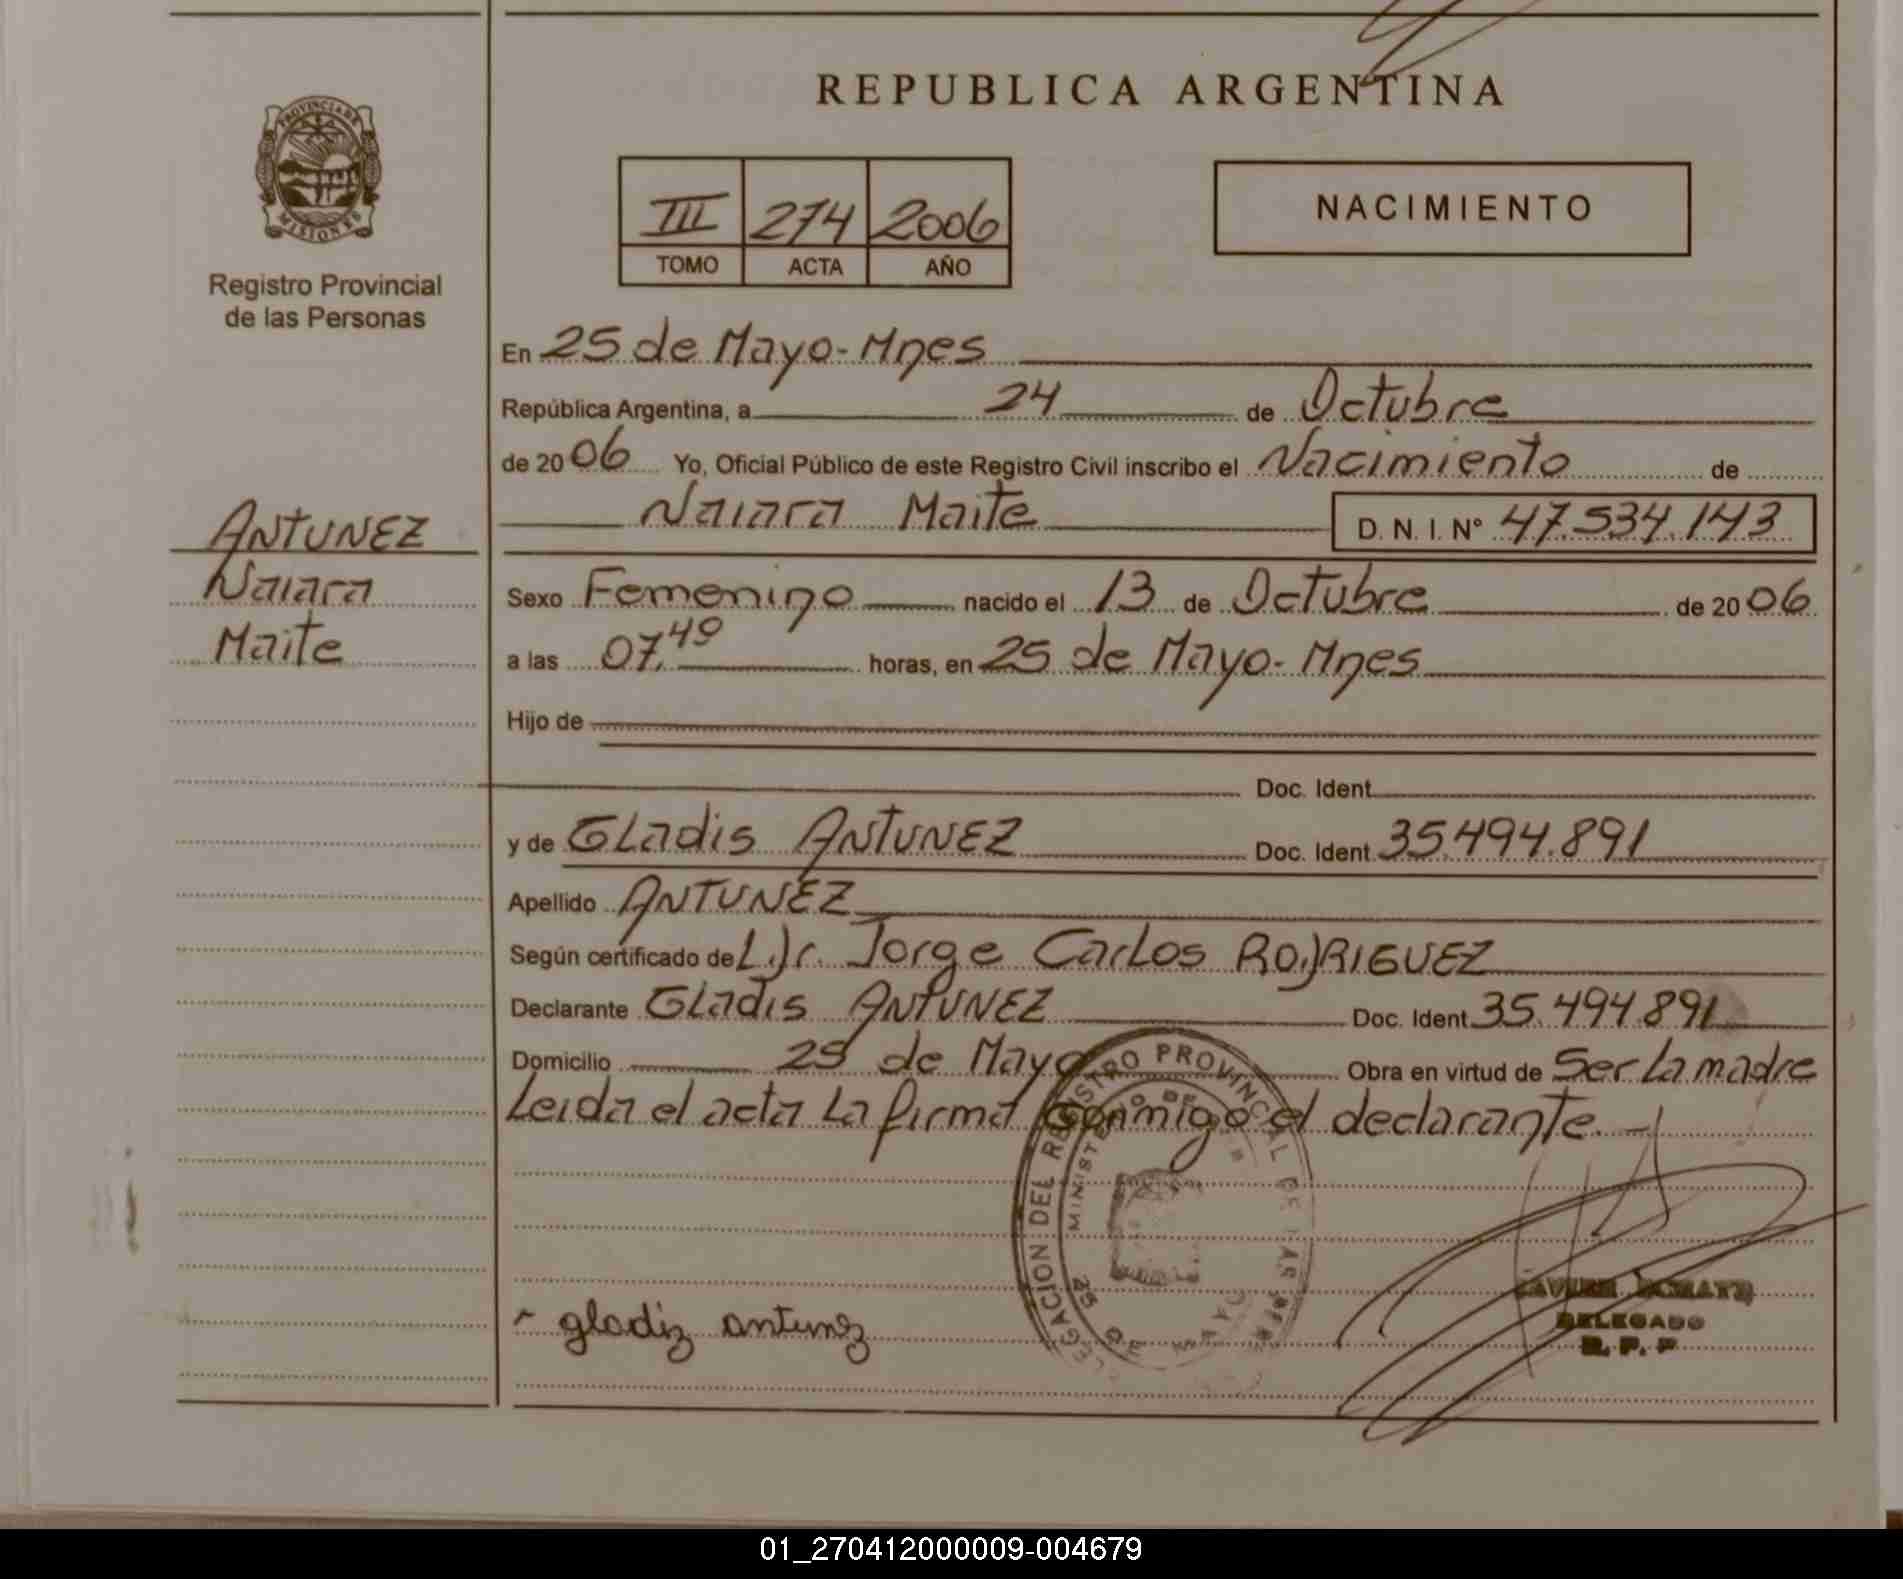 REPUBLICA ARGENTINA
PROVINCIA DE
MISIONES
Registro Provincial
de las Personas
III 274 2006
TOMO ACTA AÑO
NACIMIENTO
En 25 de Mayo - Mnes
República Argentina, a 24 de Octubre
de 2006 Yo, Oficial Público de este Registro Civil inscribo el Nacimiento de
Naiara Maite D. N. I. Nº 47.534.143
ANTUNEZ
Naiara
Maite
Sexo Femenino nacido el 13 de Octubre de 2006
a las 07,49 horas, en 25 de Mayo - Mnes
Hijo de
Doc. Ident
y de Gladis ANTUNEZ Doc. Ident 35.494.891
Apellido ANTUNEZ
Según certificado de Dr. Jorge Carlos RODRIGUEZ
Declarante Gladis ANTUNEZ Doc. Ident 35.494.891
Domicilio 25 de Mayo Obra en virtud de Ser La madre
Leida el acta La firma Conmigo el declarante.
DELEGACION DEL REGISTRO PROVINCIAL DE LAS
MINISTERIO DE
25 DE MAYO
gladiz antunez
DELEGADO
R. P. P
01_270412000009-004679